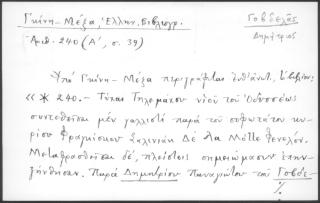 Γκίνη - Μέξα, Ἑλλην. Βιβλιογρ.
Γοβδελᾶς
Δημήτριος
Ἀριθ. 240 (Α', σ. 39)
Ὑπὸ Γκίνη - Μέξα περιγράφεται
«* 240.- Τύχαι Τηλεμάχου υἱοῦ τοῦ Ὀδυσσέως
συντεθεῖσαι μὲν γαλλιστὶ παρὰ τοῦ σοφωτάτου κυ-
ρίου Φραγκίσκου Σαλινιὰκ Δὲ Λα Μόττε Φενελόν.
Μεταφρασθεῖσαι δέ, πλείσταις σημειώμασιν ἐξηγ-
ήνθησαν. Παρὰ Δημητρίου Παναγιώτου τοῦ Γοβδε-
./.